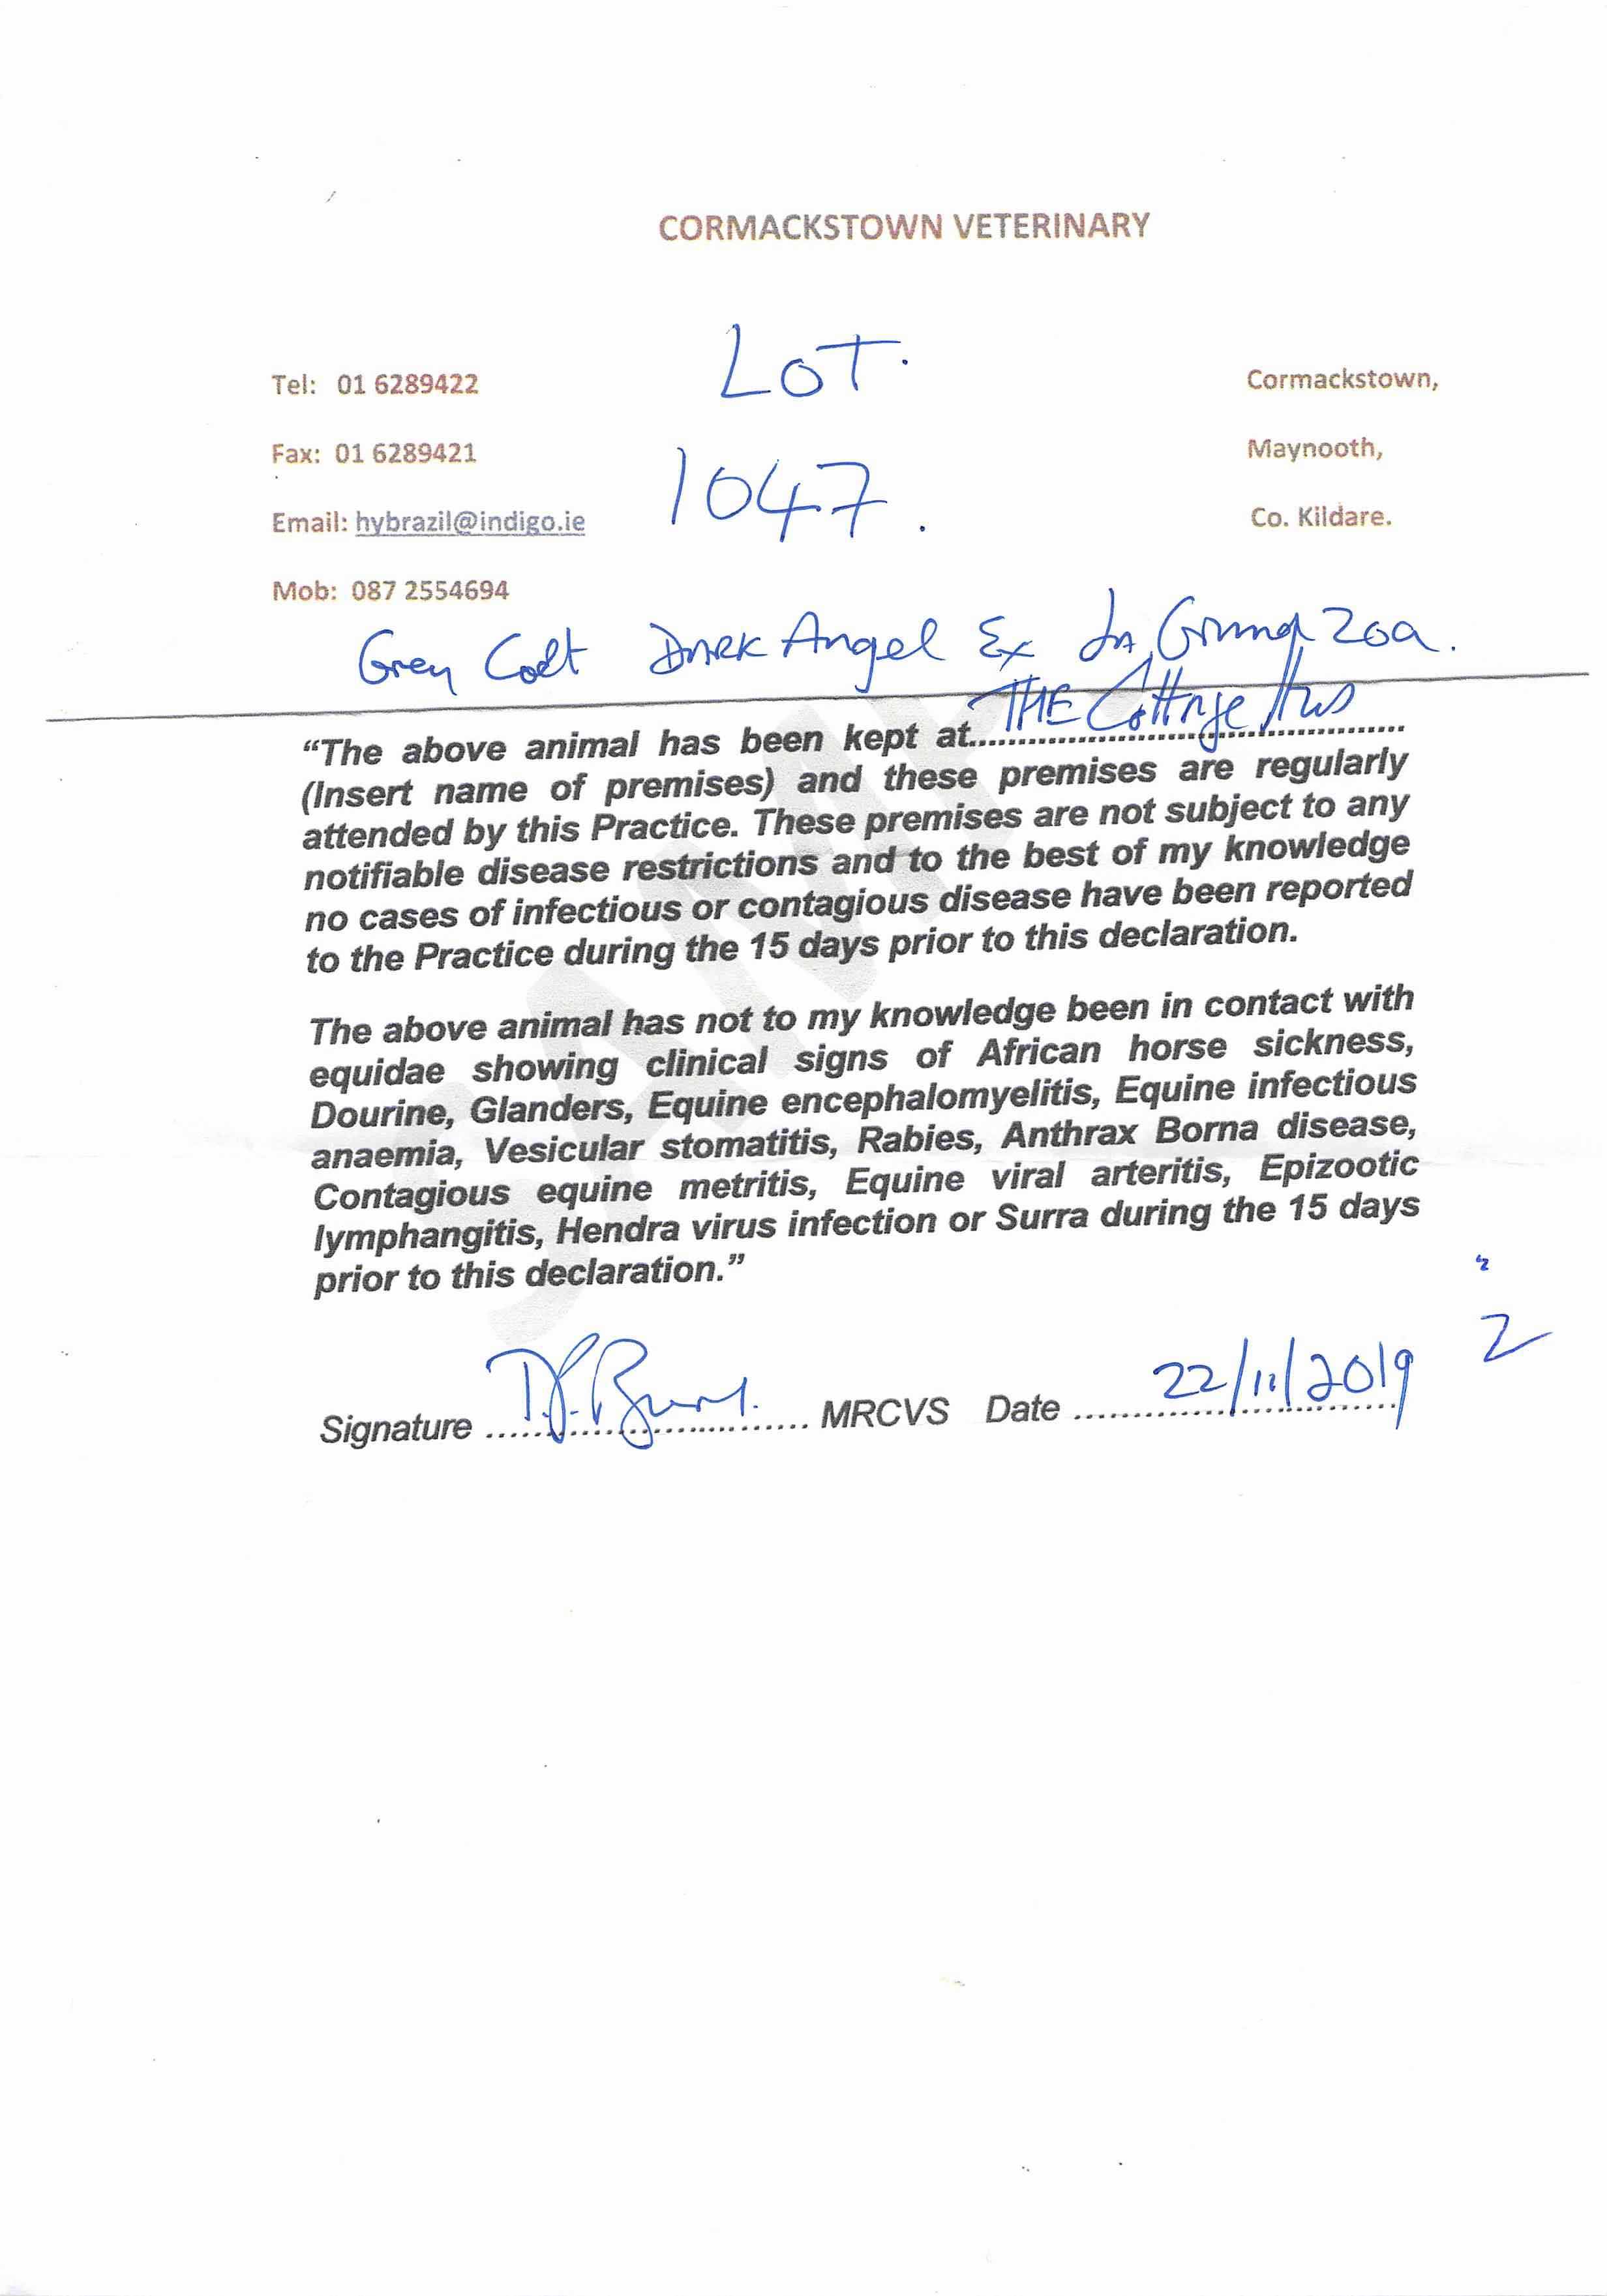 CORMACKSTOWN VETERINARY
LOT.
Tel: 01 6289422
Cormackstown,
Fax: 01 6289421
1047.
Maynooth,
Email: hybrazil@indigo.ie
Co. Kildare.
Mob: 087 2554694
Grey Colt Dark Angel Ex La Grande Zoa.
THE Cottage
“The above animal has been kept at
(Insert name of premises) and these premises are regularly
attended by this Practice. These premises are not subject to any
notifiable disease restrictions and to the best of my knowledge
no cases of infectious or contagious disease have been reported
to the Practice during the 15 days prior to this declaration.
The above animal has not to my knowledge been in contact with
equidae showing clinical signs of African horse sickness,
Dourine, Glanders, Equine encephalomyelitis, Equine infectious
anaemia, Vesicular stomatitis, Rabies, Anthrax Borna disease,
Contagious equine metritis, Equine viral arteritis, Epizootic
lymphangitis, Hendra virus infection or Surra during the 15 days
prior to this declaration.”
2
Signature MRCVS Date 22/11/2019